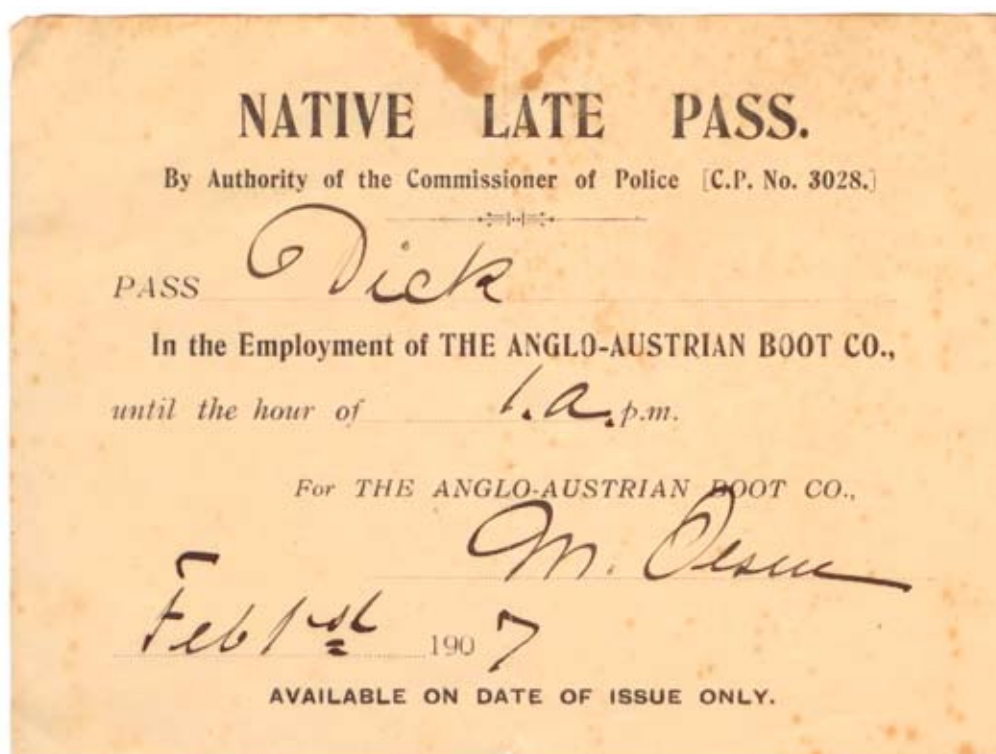 NATIVE LATE PASS.
By Authority of the Commissioner of Police [C.P. No. 3028.]
PASS Dick
In the Employment of THE ANGLO-AUSTRIAN BOOT CO.,
until the hour of 1.a.p.m.
For THE ANGLO-AUSTRIAN BOOT CO.,
M. Olsen
Feb 1st 1907
AVAILABLE ON DATE OF ISSUE ONLY.